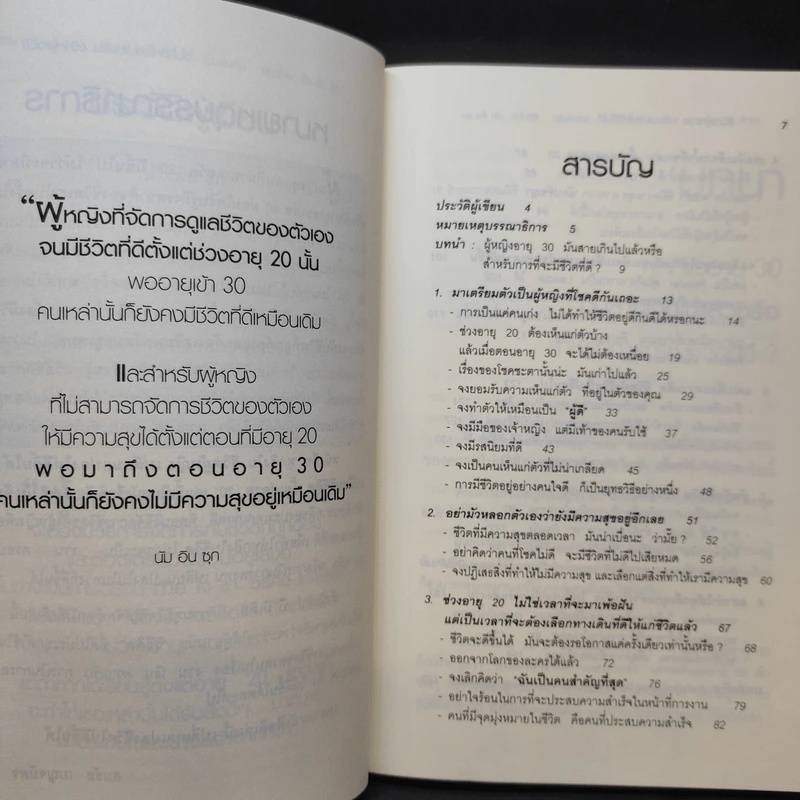 “ผู้หญิงที่จัดการดูแลชีวิตของตัวเอง
จนมีชีวิตที่ดีตั้งแต่ช่วงอายุ 20 นั้น
พออายุเข้า 30
คนเหล่านั้นก็ยังคงมีชีวิตที่ดีเหมือนเดิม
และสำหรับผู้หญิง
ที่ไม่สามารถจัดการชีวิตของตัวเอง
ให้มีความสุขได้ตั้งแต่ตอนที่มีอายุ 20
พอมาถึงตอนอายุ 30
คนเหล่านั้นก็ยังคงไม่มีความสุขอยู่เหมือนเดิม”
นัม อิน ซุก
7
สารบัญ
ประวัติผู้เขียน 4
หมายเหตุบรรณาธิการ 5
บทนำ : ผู้หญิงอายุ 30 มันสายเกินไปแล้วหรือ
สำหรับการที่จะมีชีวิตที่ดี ? 9
1. มาเตรียมตัวเป็นผู้หญิงที่โชคดีกันเถอะ 13
- การเป็นแค่คนเก่ง ไม่ได้ทำให้ชีวิตอยู่ดีกินดีได้หรอกนะ 14
- ช่วงอายุ 20 ต้องเห็นแก่ตัวบ้าง
แล้วเมื่อตอนอายุ 30 จะได้ไม่ต้องเหนื่อย 19
- เรื่องของโชคชะตานั้นน่ะ มันเก่าไปแล้ว 25
- จงยอมรับความเห็นแก่ตัว ที่อยู่ในตัวของคุณ 29
- จงทำตัวให้เหมือนเป็น "ผู้ดี" 33
- จงมีมือของเจ้าหญิง แต่มีเท้าของคนรับใช้ 37
- จงมีรสนิยมที่ดี 43
- จงเป็นคนเห็นแก่ตัวที่ไม่น่าเกลียด 45
- การมีชีวิตอยู่อย่างคนใจดี ก็เป็นยุทธวิธีอย่างหนึ่ง 48
2. อย่ามัวหลอกตัวเองว่ายังมีความสุขอยู่อีกเลย 51
- ชีวิตที่มีความสุขตลอดเวลา มันน่าเบื่อนะ ว่ามั้ย ? 52
- อย่าคิดว่าคนที่โชคไม่ดี จะมีชีวิตที่ไม่ดีไปเสียหมด 56
- จงปฏิเสธสิ่งที่ทำให้ไม่มีความสุข และเลือกแต่สิ่งที่ทำให้เรามีความสุข 60
3. ช่วงอายุ 20 ไม่ใช่เวลาที่จะมาเพ้อฝัน
แต่เป็นเวลาที่จะต้องเลือกทางเดินที่ดีให้แก่ชีวิตแล้ว 67
- ชีวิตจะดีขึ้นได้ มันจะต้องรอโอกาสแค่ครั้งเดียวเท่านั้นหรือ ? 68
- ออกจากโลกของละครได้แล้ว 72
- จงเลิกคิดว่า "ฉันเป็นคนสำคัญที่สุด" 76
- อย่าใจร้อนในการที่จะประสบความสำเร็จในหน้าที่การงาน 79
- คนที่มีจุดมุ่งหมายในชีวิต คือคนที่ประสบความสำเร็จ 82